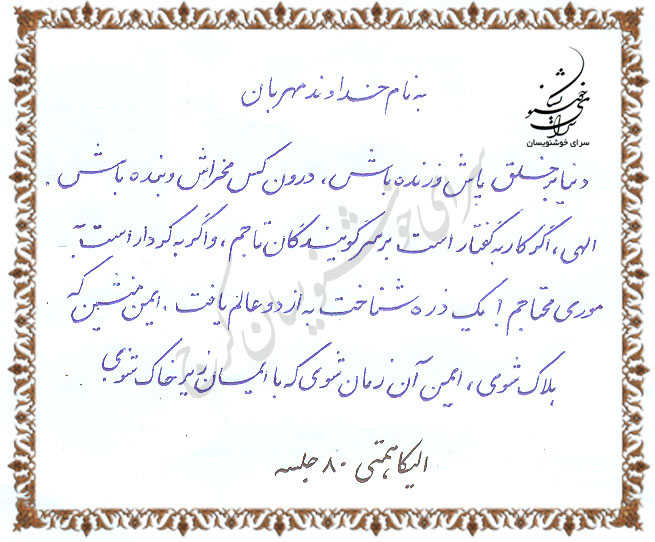 به نام خداوند مهربان
سرای خوشنویسان
دنیا بر خلق پاش و زنده باش، درون کس مخراش و بنده باش.
الهی، اگر کار به گفتار است بر سر گویندگان تاجم، و اگر به کردار است به
موری محتاجم! یک ذره شناخت به از دو عالم یافت. ایمن منشین که
هلاک شوی، ایمن آن زمان شوی که با ایمان زیر خاک شوی
الیکا همتی ۸۰ جلسه
سرای خوشنویسان کرج